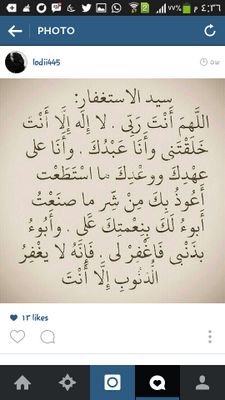 ٧٧% ٤:٣٦ م
PHOTO
lodii445
٥w
سيد الاستغفار:
اللَّهمَ أَنْتَ رَبّى . لا إِلَه إِلَّا أَنْتَ
خَلَقْتَنى وأَنَا عَبْدُكَ . وأَنَا عَلى
عهْدِكَ ووعْدِكَ ما اسْتَطَعْت
أَعُوذُ بِكَ مِنْ شَّرِ ما صنَعْتُ
أَبوءُ لَكَ بِنِعْمتِكَ عَلَّى . وأَبُوءُ
بذَنْبى فَاغْفِرْ لى . فَإِنَّهُ لا يغْفِرُ
الذُنُوبِ إِلَّا أَنْتَ
١٣ likes